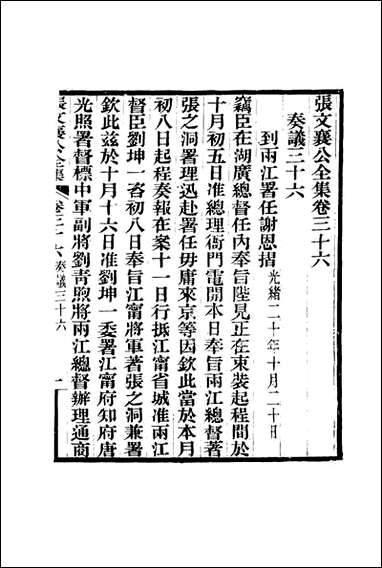 張文襄公全集卷三十六
奏議三十六
到兩江署任謝恩摺光緒二十年十月二十日
竊臣在湖廣總督任內奉旨陛見正在束裝起程間於
十月初五日准總理衙門電開本日奉旨兩江總督著
張之洞署理迅赴署任毋庸來京等因欽此當於本月
初八日起程奏報在案十一日行抵江甯省城准兩江
督臣劉坤一咨初八日奉旨江甯將軍著張之洞兼署
欽此茲於十月十六日准劉坤一委署江甯府知府唐
光照署督標中軍副將劉青煦將兩江總督辦理通商
張文襄公全集 卷三十六 奏議三十六 一